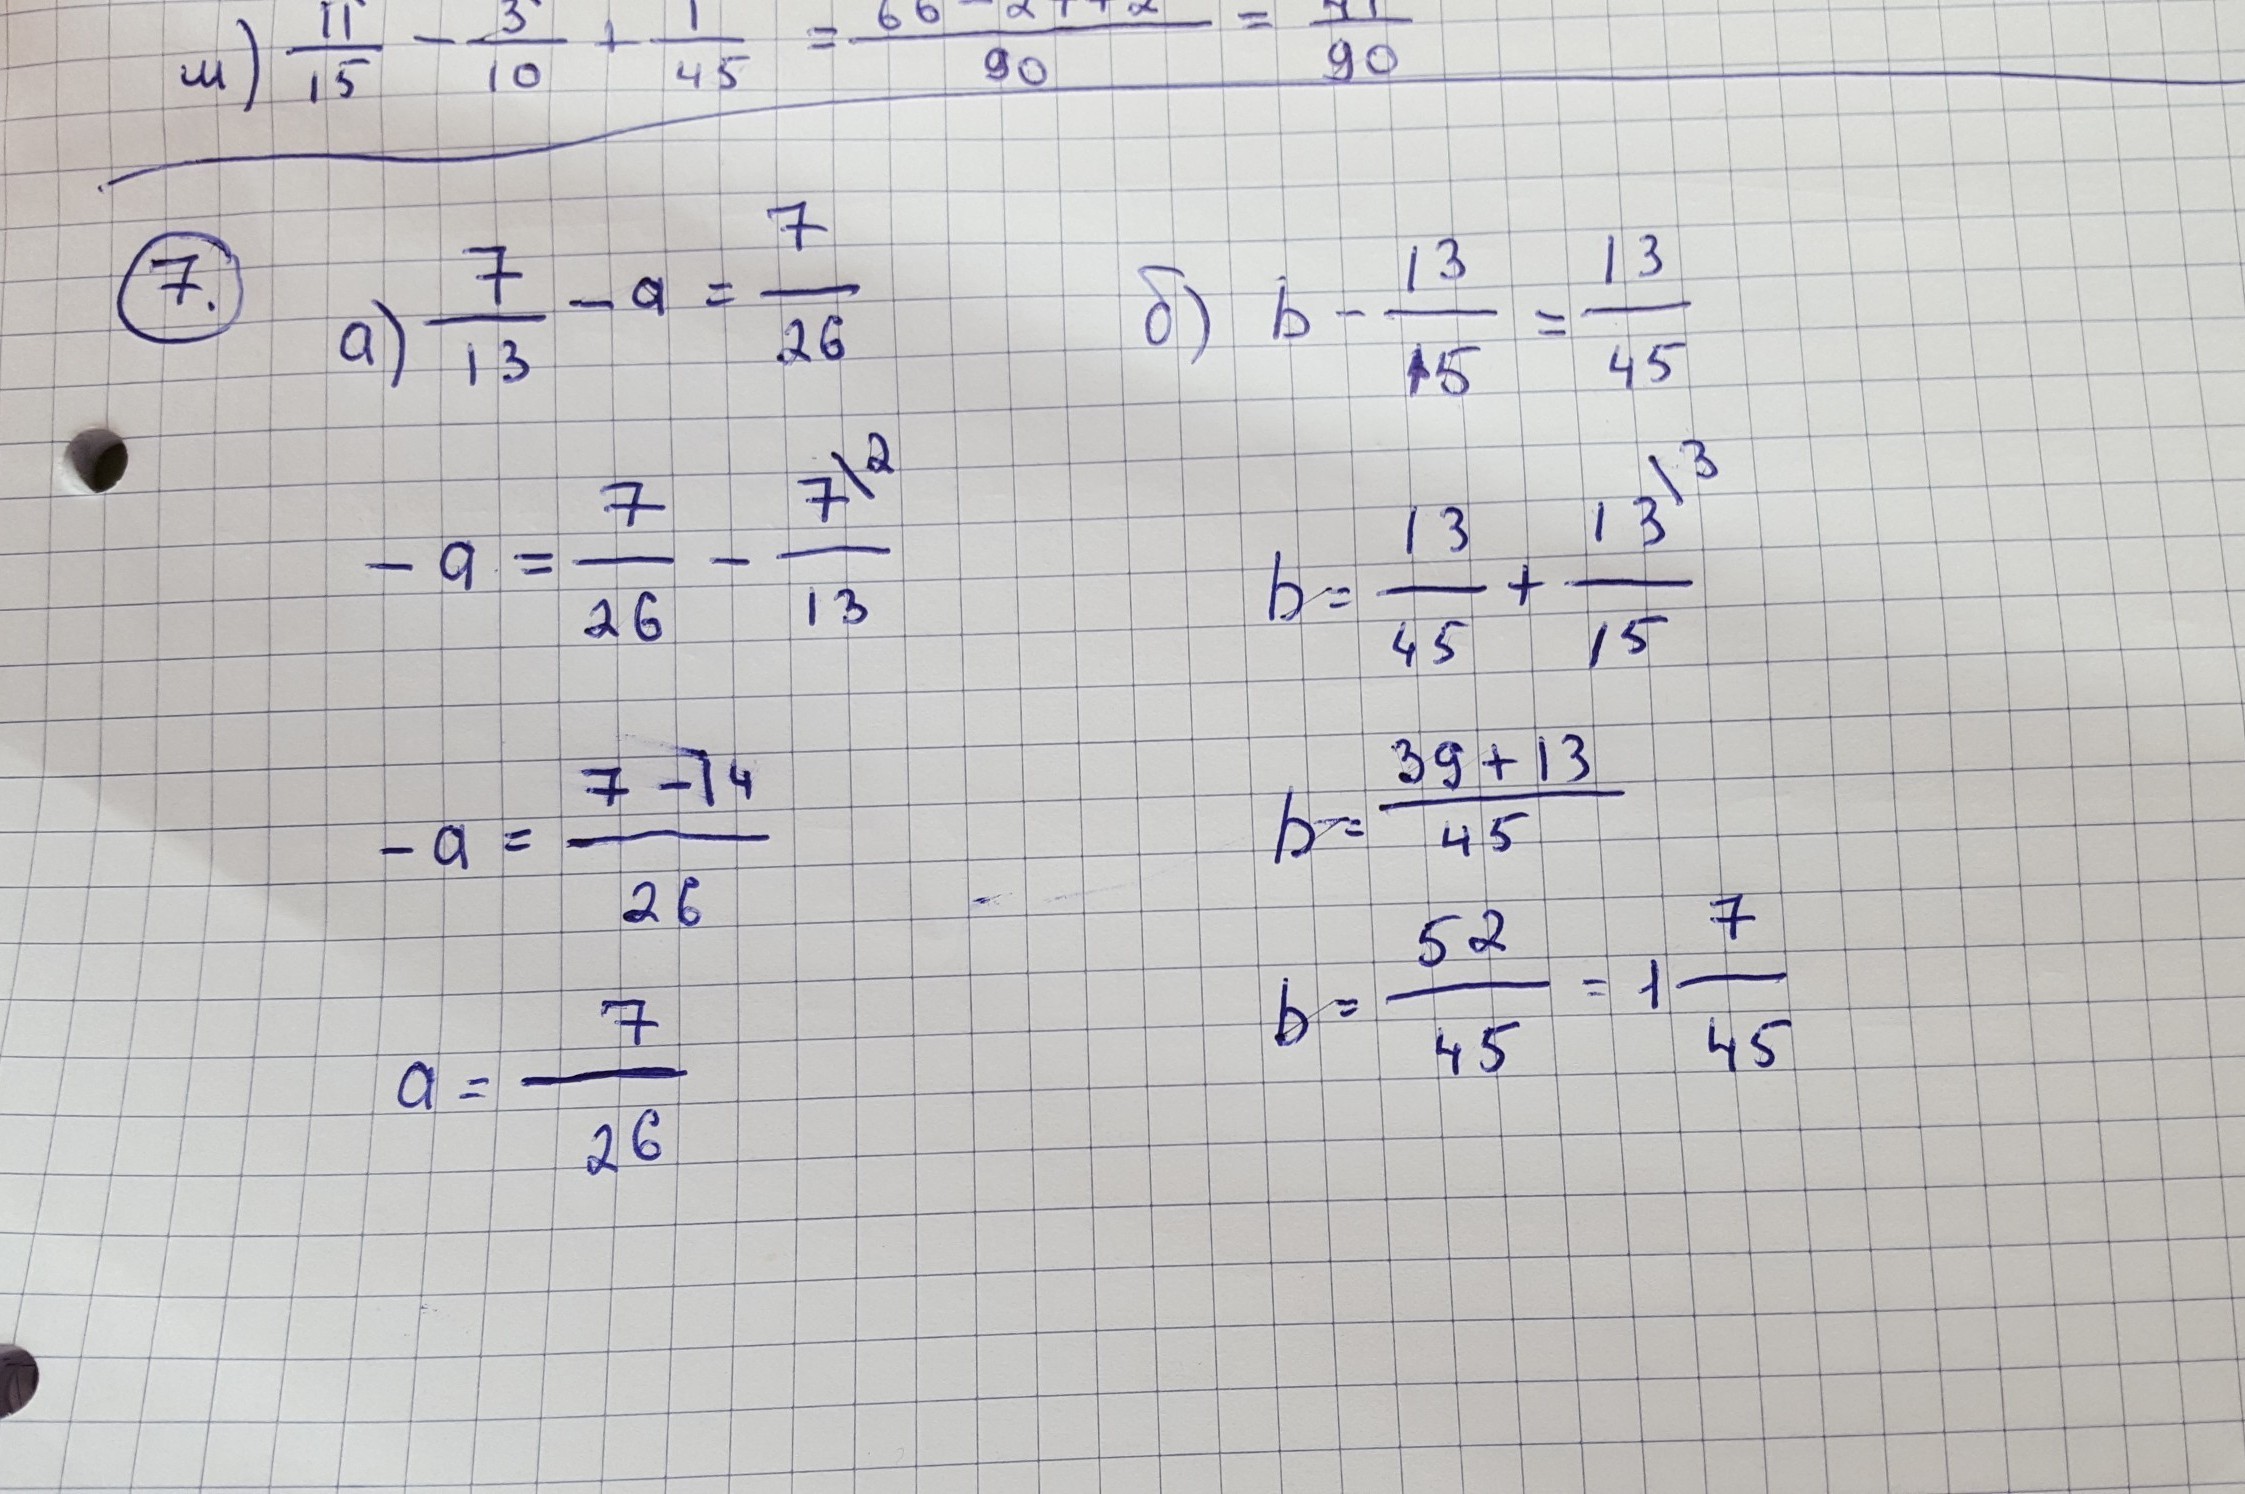 ш) 11/15 - 3/10 + 1/45 = 66-27+2/90 = 41/90
7.
а) 7/13 - a = 7/26
-a = 7/26 - 7\2/13
-a = 7-14/26
a = 7/26
б) b - 13/15 = 13/45
b = 13/45 + 13\3/15
b = 39+13/45
b = 52/45 = 1 7/45